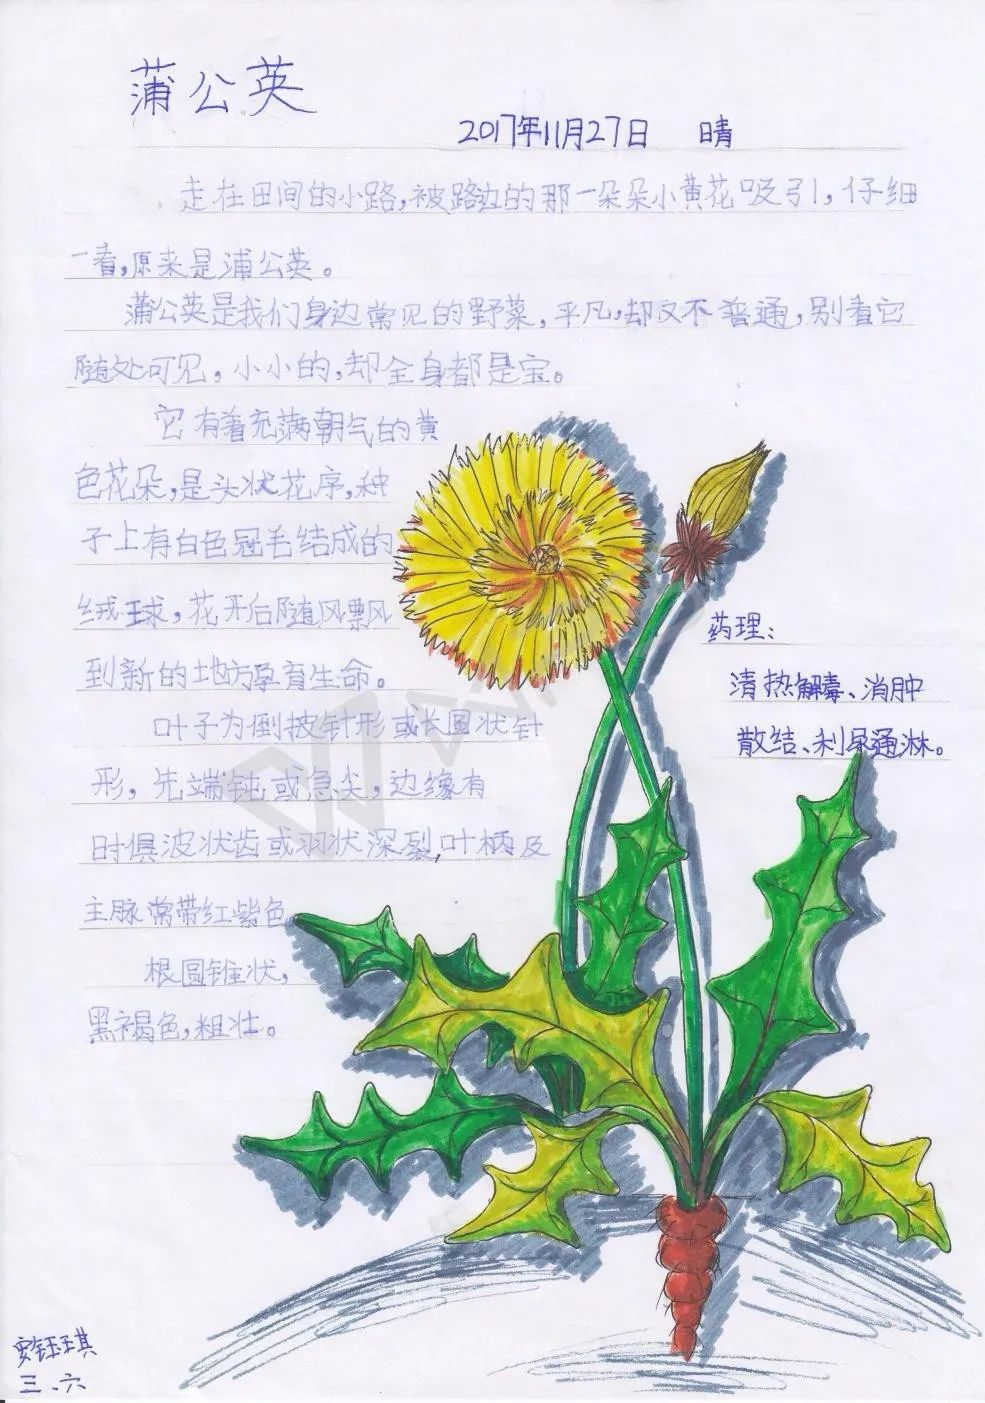 蒲公英
2017年11月27日 晴
走在田间的小路,被路边的那一朵朵小黄花吸引,仔细
一看,原来是蒲公英。
蒲公英是我们身边常见的野菜,平凡,却又不普通,别看它
随处可见,小小的,却全身都是宝。
它有着充满朝气的黄
色花朵,是头状花序,种
子上有白色冠毛结成的
绒球,花开后随风飘
到新的地方孕育生命。
叶子为倒披针形或长圆状针
形,先端钝或急尖,边缘有
时俱波状齿或羽状深裂,叶柄及
主脉常带红紫色
根圆锥状,
黑褐色,粗壮。
药理:
清热解毒、消肿
散结、利尿通淋。
安钰琪
三、六